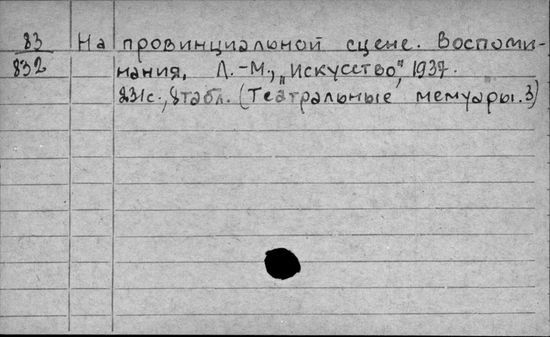 83 На провинциальной сцене. Воспоми-
832 нания. Л.-М., „Искусство", 1937.
231с., 8табл. (Театральные мемуары. 3)